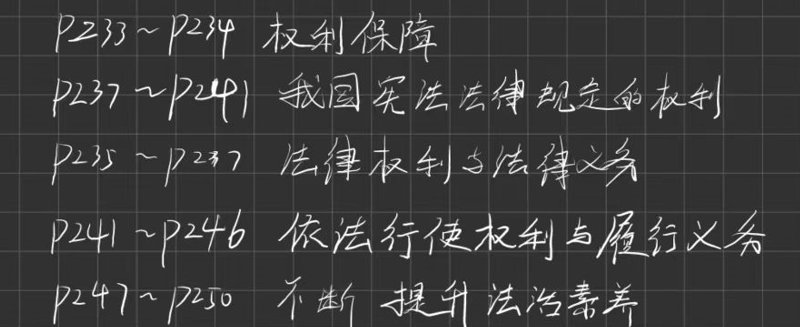 P233~P234 权利保障
P237~P241 我国宪法法律规定的权利
P235~P237 法律权利与法律义务
P241~P246 依法行使权利与履行义务
P247~P250 不断提升法治素养